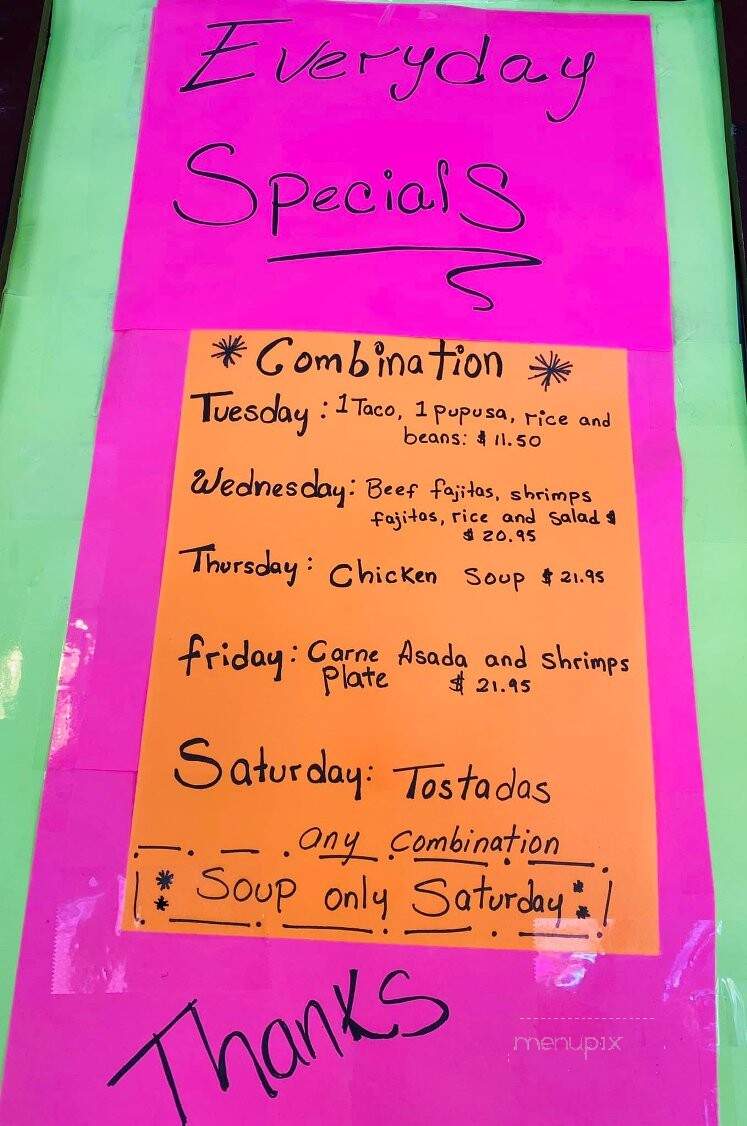 Everyday
Specials
* Combination *
Tuesday: 1 Taco, 1 pupusa, rice and
beans: $ 11.50
Wednesday: Beef fajitas, shrimps
fajitas, rice and Salad $
$ 20.95
Thursday: Chicken Soup $ 21.95
friday: Carne Asada and shrimps
Plate $ 21.95
Saturday: Tostadas
any combination
* Soup only Saturday *
Thanks
menupix